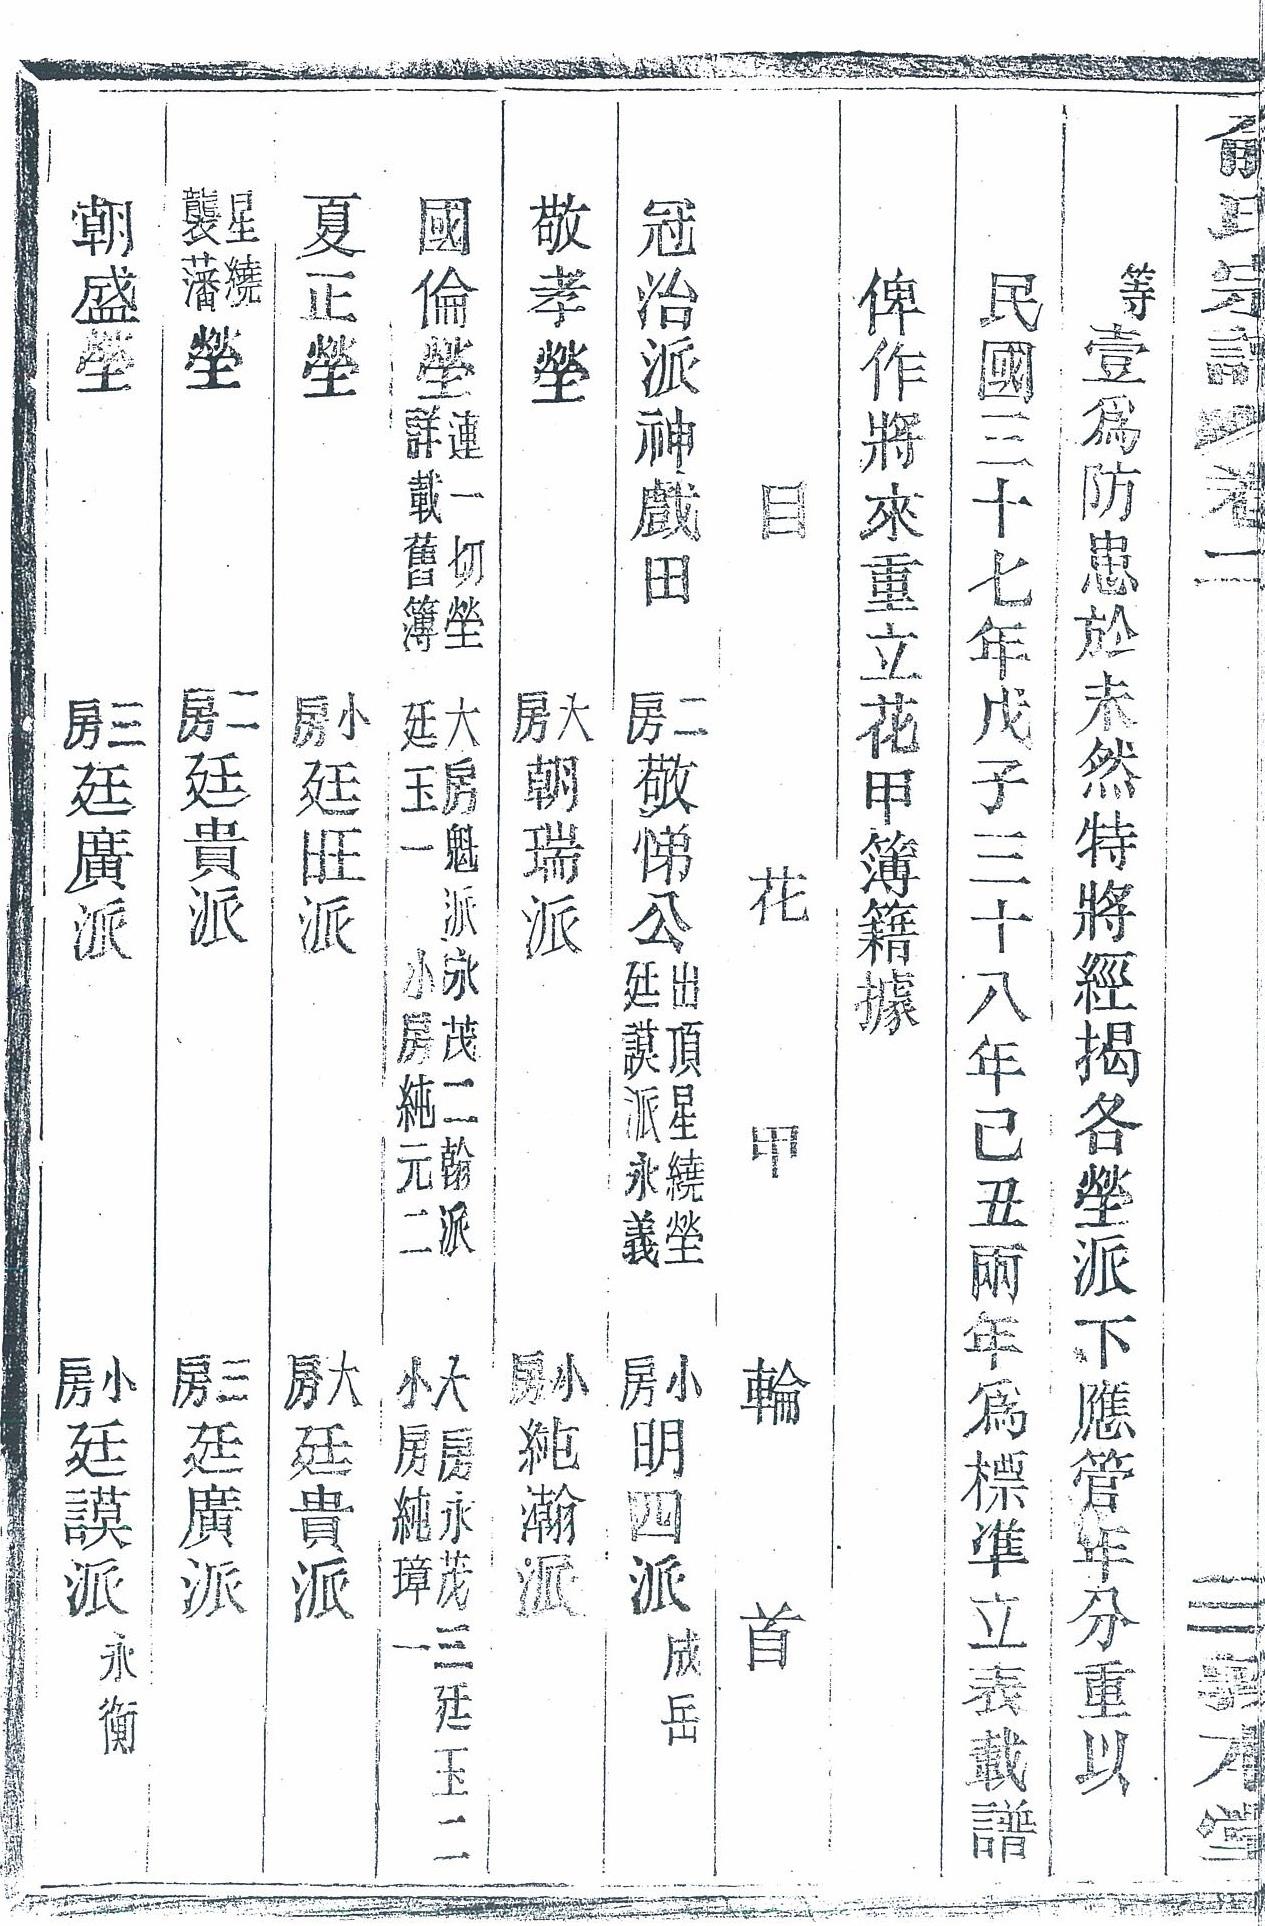 俞氏宗譜 卷一 三 義方堂
等壹爲防患於未然特將經揭各塋派下應管年分重以
民國三十七年戊子三十八年己丑兩年爲標準立表載譜
俾作將來重立花甲簿籍據
目 花 甲 輪 首
冠治派神戲田 二房敬悌公 出頂星繞塋 廷謨派永義 小房明四派 成岳
敬孝塋 大房朝瑞派 小房純瀚派
國倫塋 連一切塋 詳載舊簿 大房魁派永茂二翰派 廷玉一 小房純元二 大房永茂三廷玉二 小房純璋一
夏正塋 小房廷旺派 大房廷貴派
星繞 襲藩塋 二房廷貴派 三房廷廣派
朝盛塋 三房廷廣派 小房廷謨派 永衡